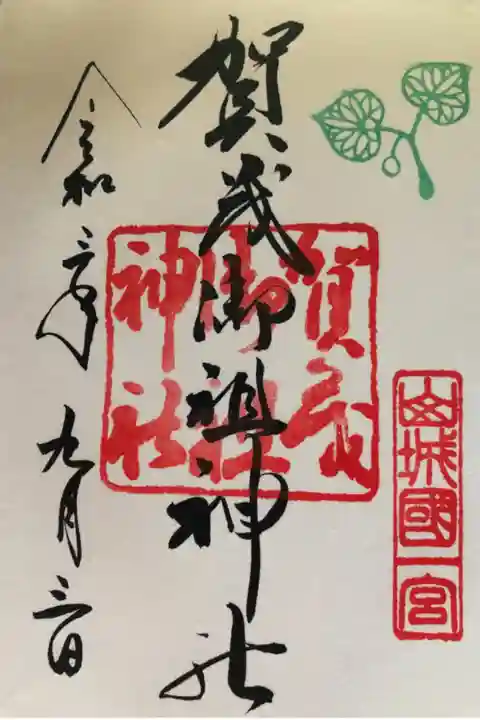 山城國一宮
賀茂御祖神社
賀茂
御祖
神社
令和
九月三日